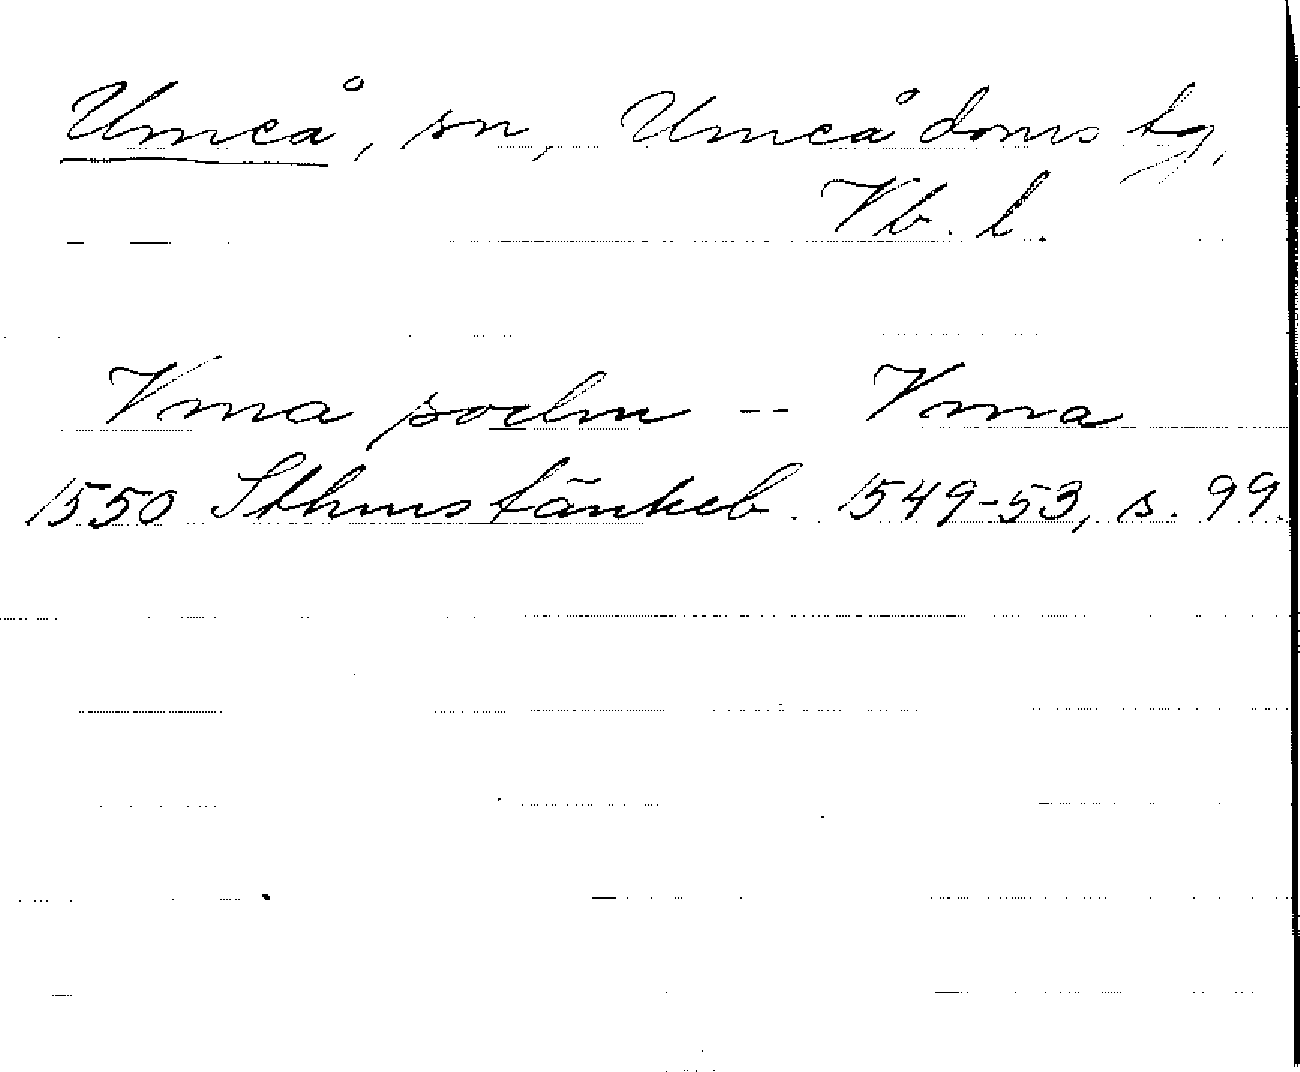 Umeå, sn, Umeå doms tg,
Vb. l.
Vma sochn -- Vma
1550 Sthms tänkeb. 1549-53, s. 99.